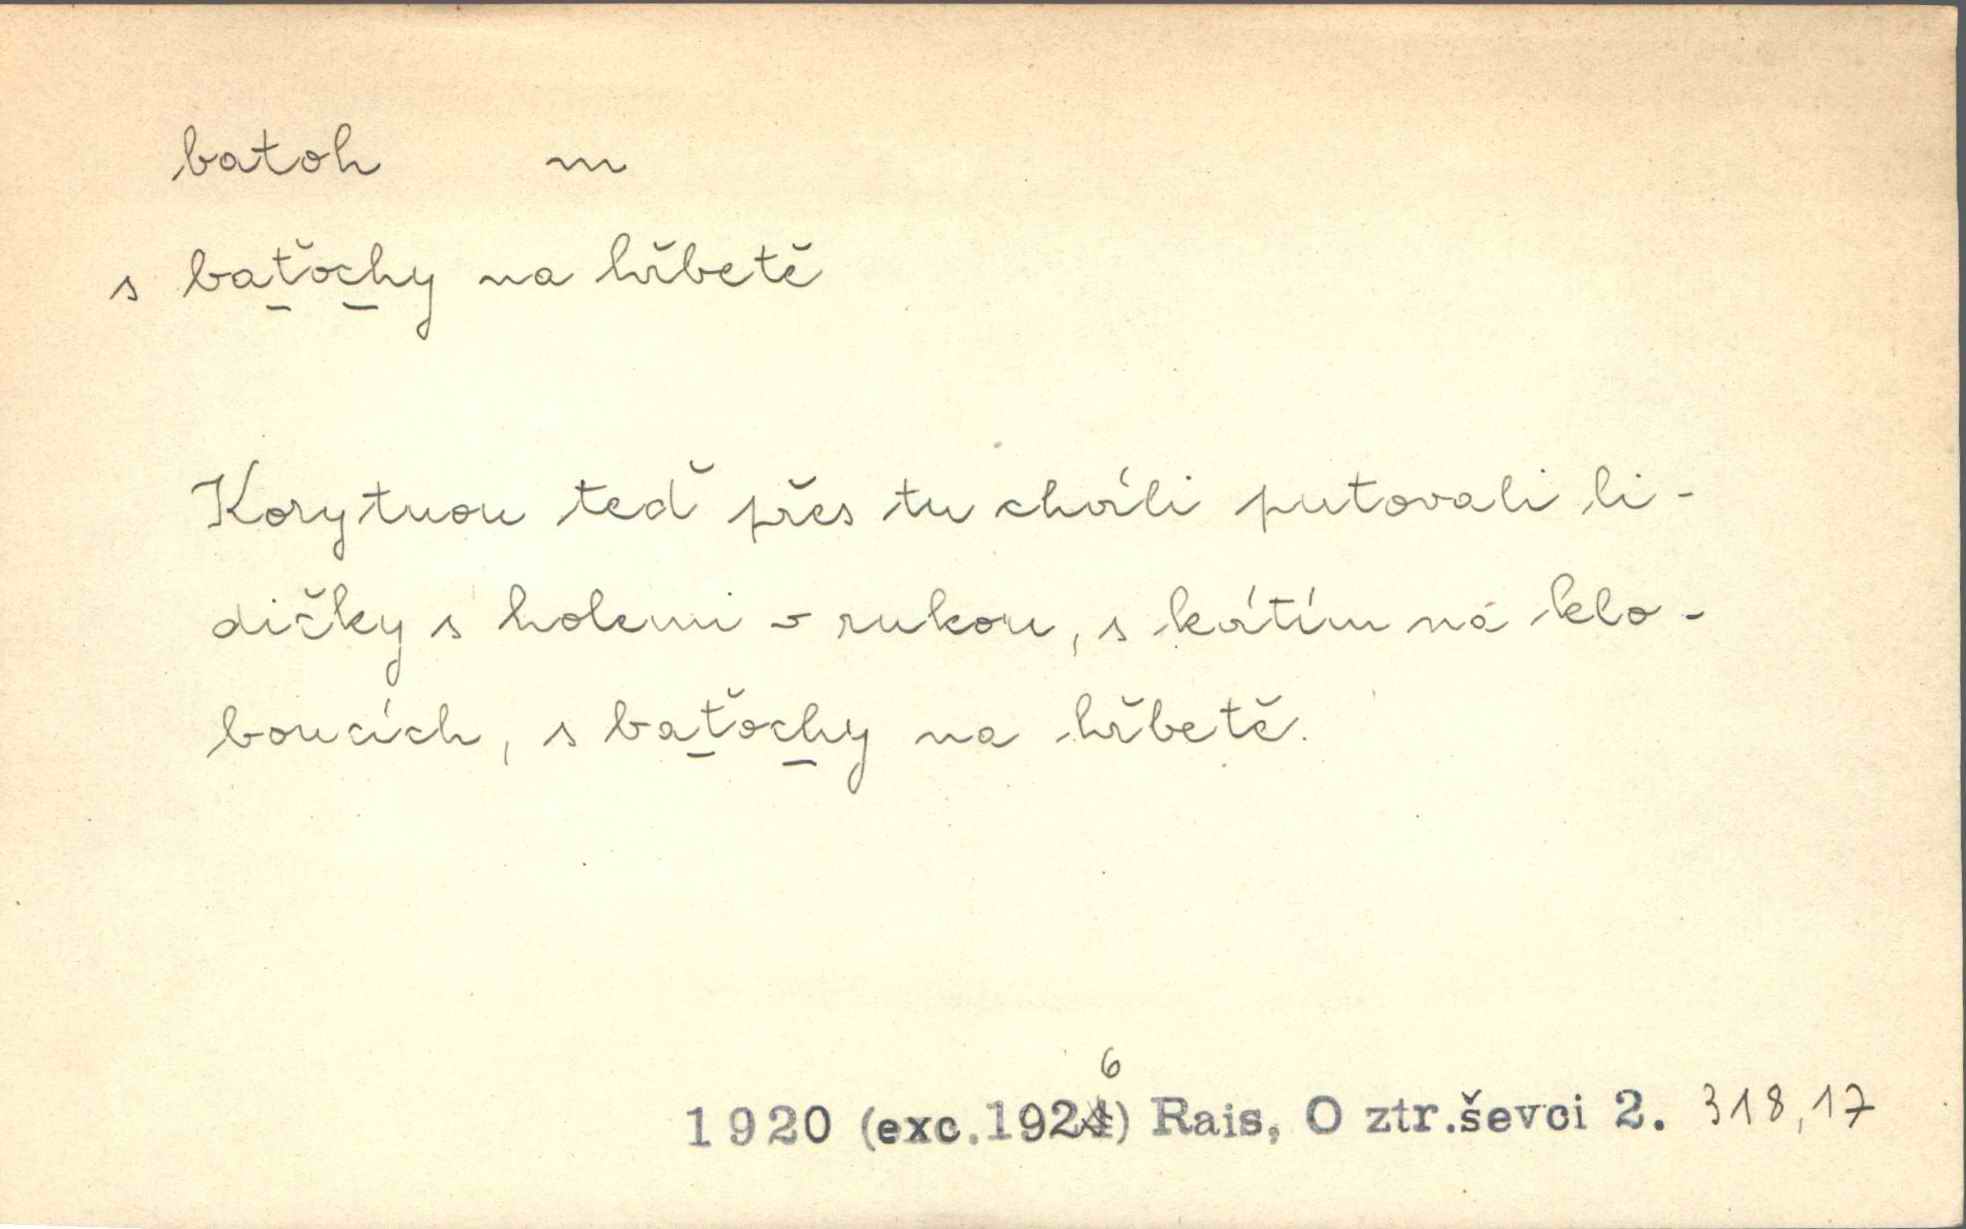 batoh m
s baťochy na hřbetě
Korytnou teď přes tu chvíli putovali li-
dičky s holemi v rukou, s kvítím na klo-
boucích, s baťochy na hřbetě.
6
1920 (exc.1924) Rais, O ztr.ševci 2. 318,17